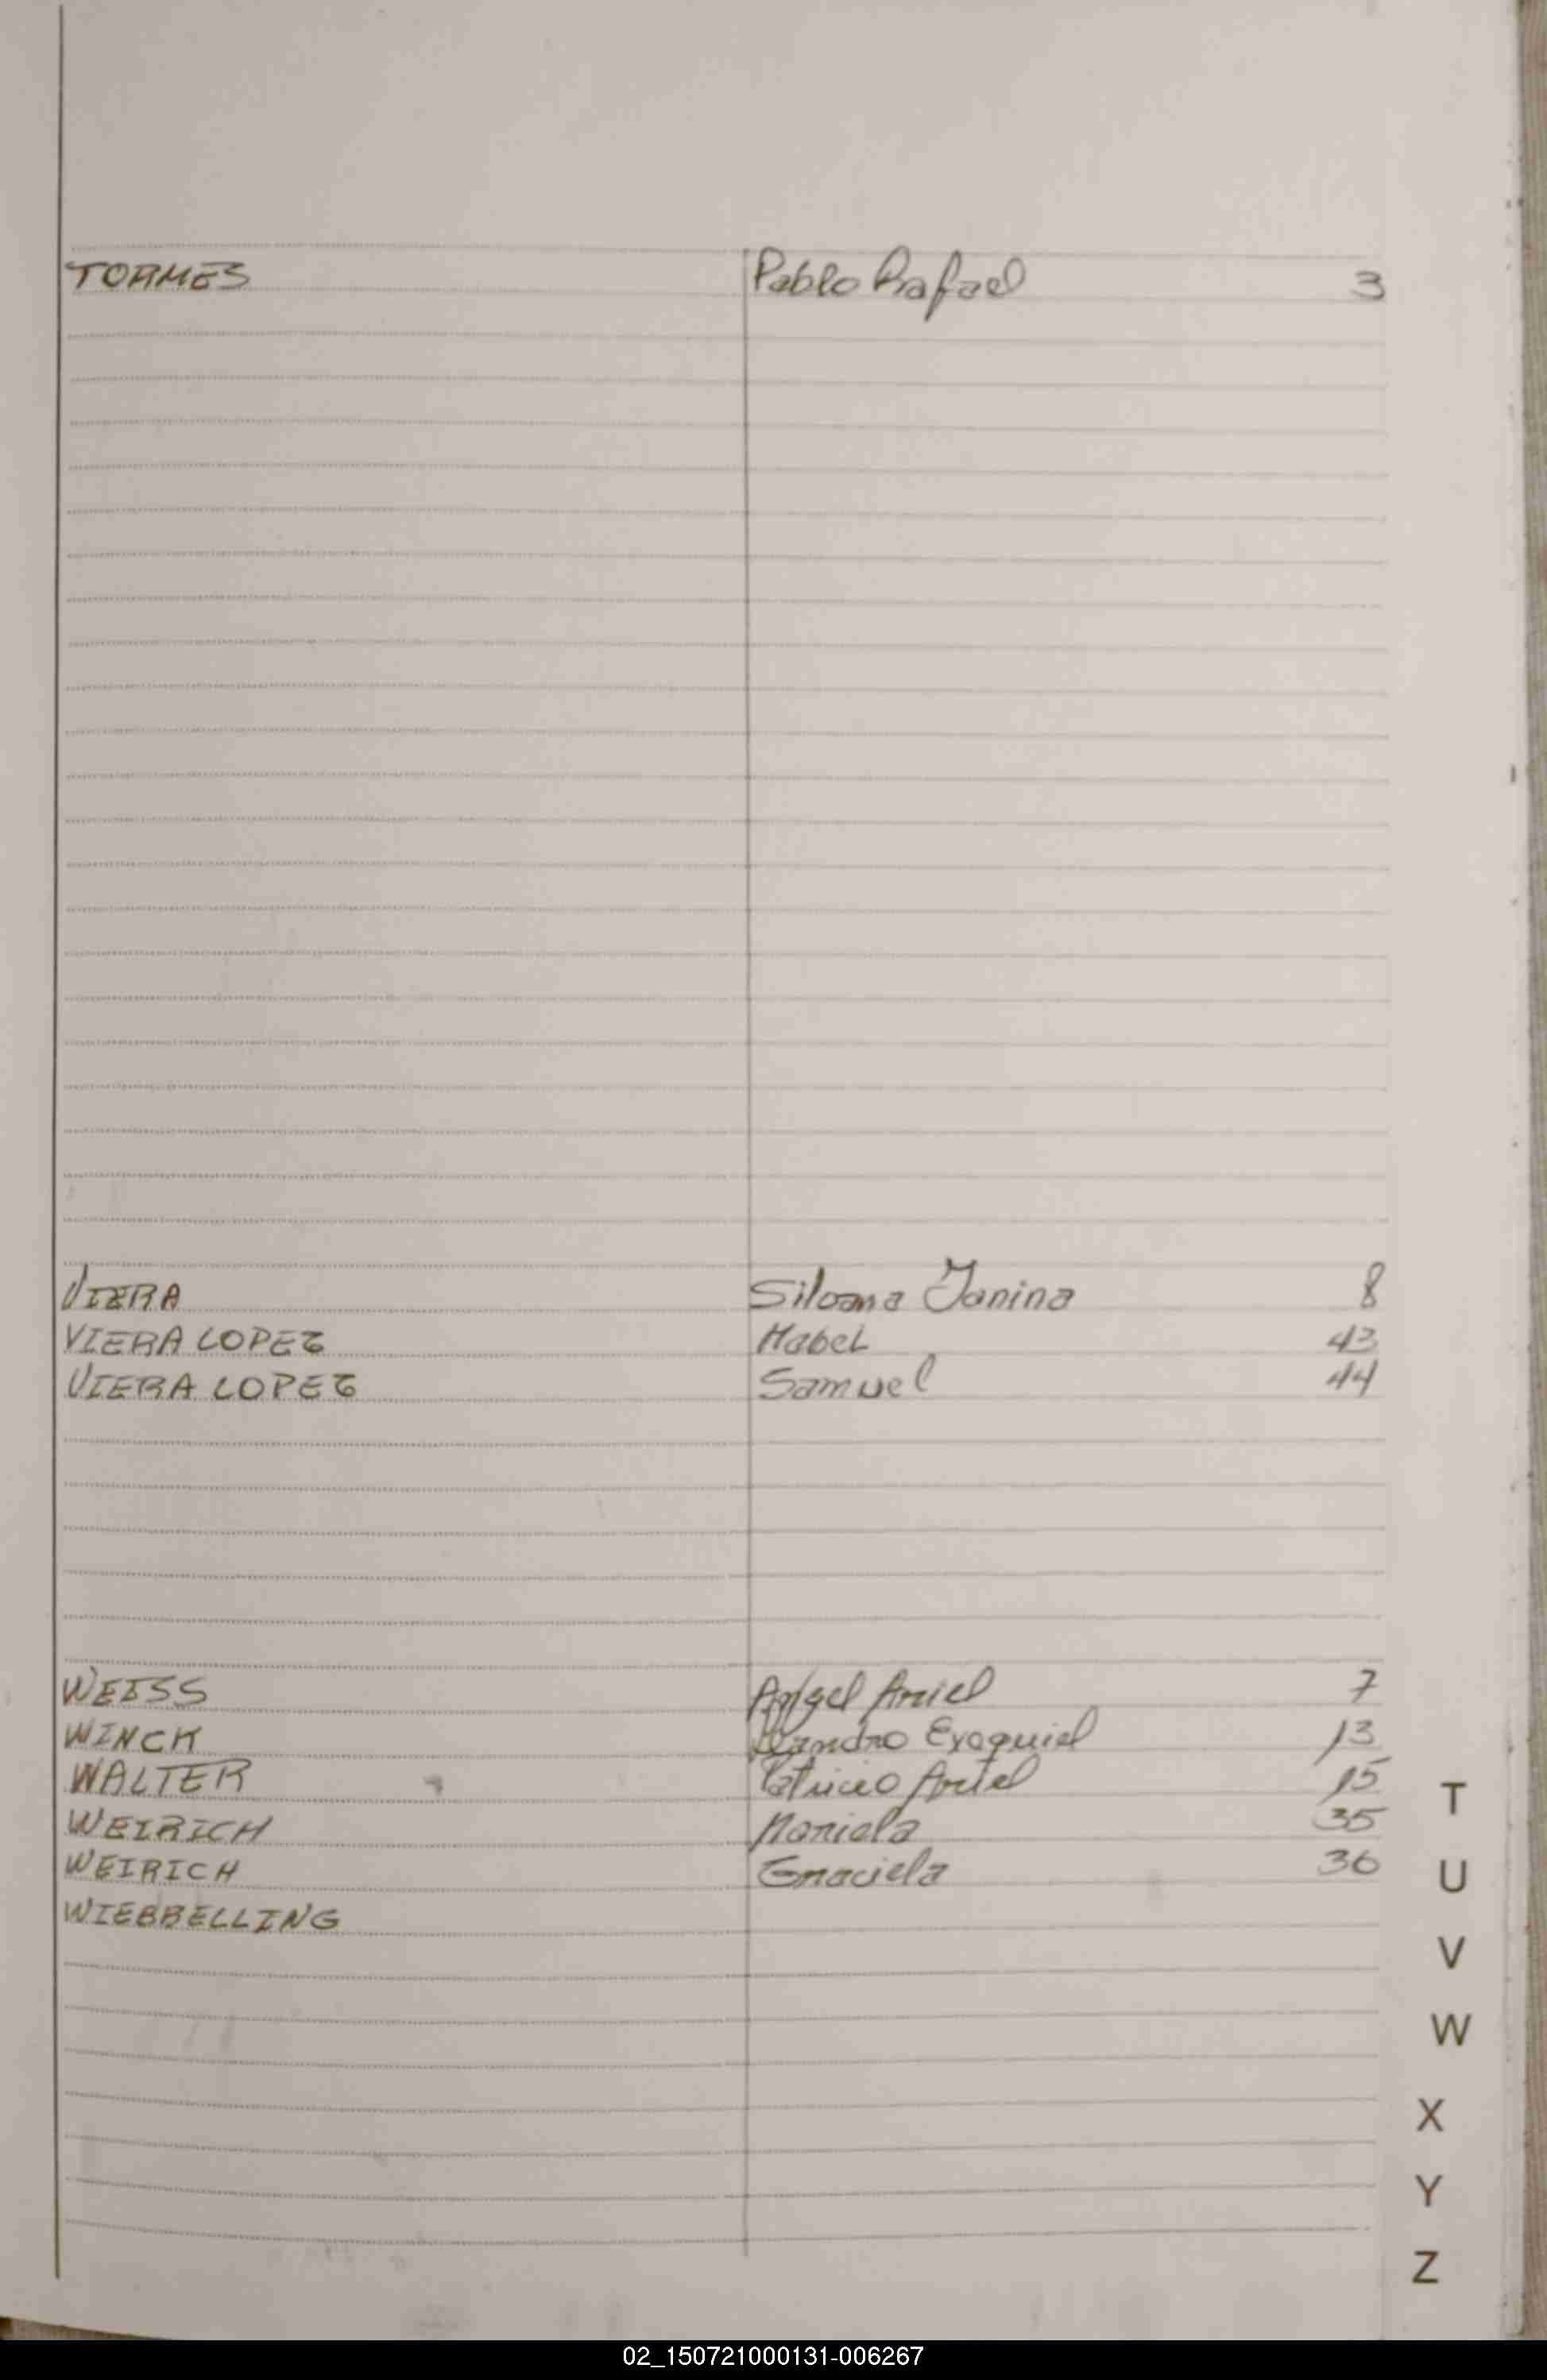 TORMES Pablo Rafael 3
VIERA Silvana Janina 8
VIERA LOPEZ Mabel 43
VIERA LOPEZ Samuel 44
WEISS Ariel 7
WINCK Exequiel 13
WALTER Patricio Ariel 15
WEIRICH Mariela 35
WEIRICH Graciela 36
WIEBBELLING
T
U
V
W
X
Y
Z
02_150721000131-006267